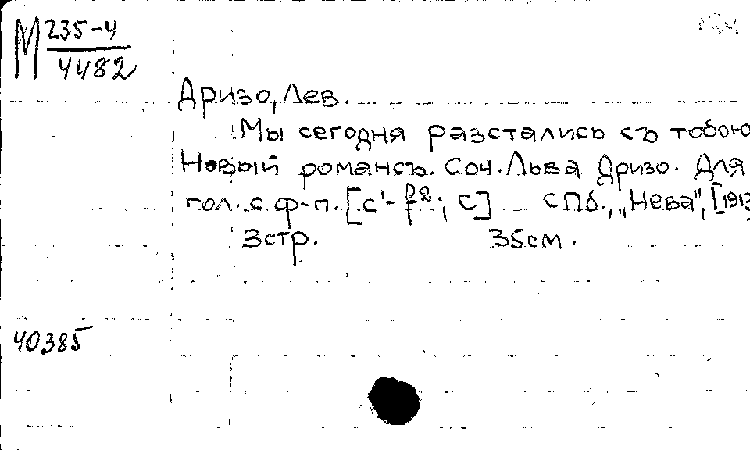 М 235-4
4482
Дризо, Лев.
Мы сегодня разстались съ тобою
Новый романсъ. Соч. Льва Дризо. Для
гол. с ф-п. [c¹-f²; c] СПб., „Нева", [1913
3стр. 35см.
40385